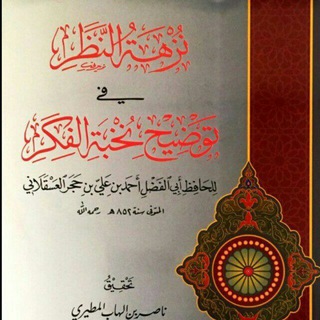 نُزْهَةُ النَّظَرِ
في
تَوْضِيحِ نُخْبَةِ الفِكَرِ
للحافظ أبي الفضل أحمد بن علي بن حجر العسقلاني
المتوفى سنة ٨٥٢ هـ رحمه الله
تحقيق
ناصر بن الهاب المطيري